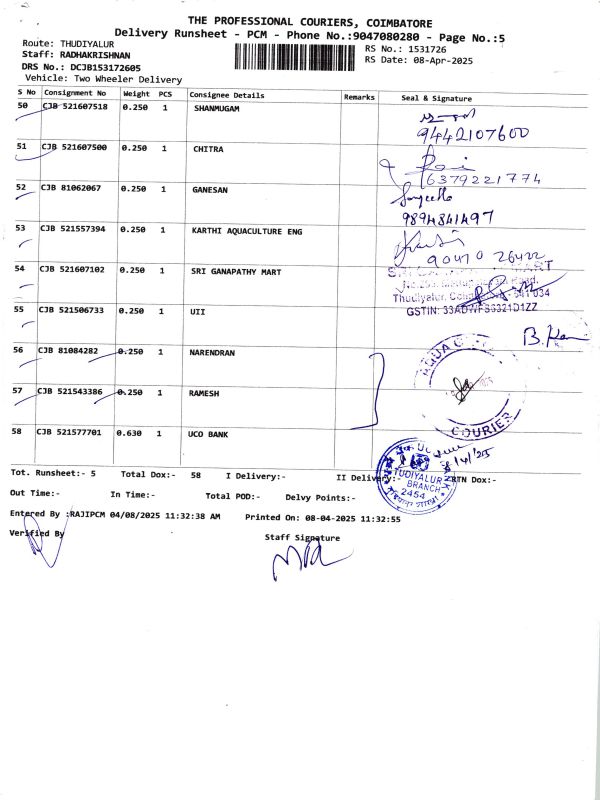 THE PROFESSIONAL COURIERS, COIMBATORE
Delivery Runsheet - PCM - Phone No.:9047080280 - Page No.:5
Route: THUDIYALUR
RS No.: 1531726
Staff: RADHAKRISHNAN
RS Date: 08-Apr-2025
DRS No.: DCJB153172605
Vehicle: Two Wheeler Delivery
S No Consignment No Weight PCS Consignee Details Remarks Seal & Signature
50 CJB 521607518 0.250 1 SHANMUGAM
9442107600
51 CJB 521607500 0.250 1 CHITRA
6379221774
52 CJB 81062067 0.250 1 GANESAN
9894841497
53 CJB 521557394 0.250 1 KARTHI AQUACULTURE ENG
90470 26422
54 CJB 521607102 0.250 1 SRI GANAPATHY MART
MART
Road,
Thudiyalur, 641 034
GSTIN: 33ADWFS6321D1ZZ
55 CJB 521506733 0.250 1 UII
56 CJB 81084282 0.250 1 NARENDRAN
AQUA
57 CJB 521543386 0.250 1 RAMESH
COURIER
58 CJB 521577701 0.630 1 UCO BANK
8/4/25
TUDIYALUR
BRANCH
2454
Tot. Runsheet:- 5 Total Dox:- 58 I Delivery:- II Delivery:- RTN Dox:-
Out Time:- In Time:- Total POD:- Delvy Points:-
Entered By :RAJIPCM 04/08/2025 11:32:38 AM Printed On: 08-04-2025 11:32:55
Verified By Staff Signature